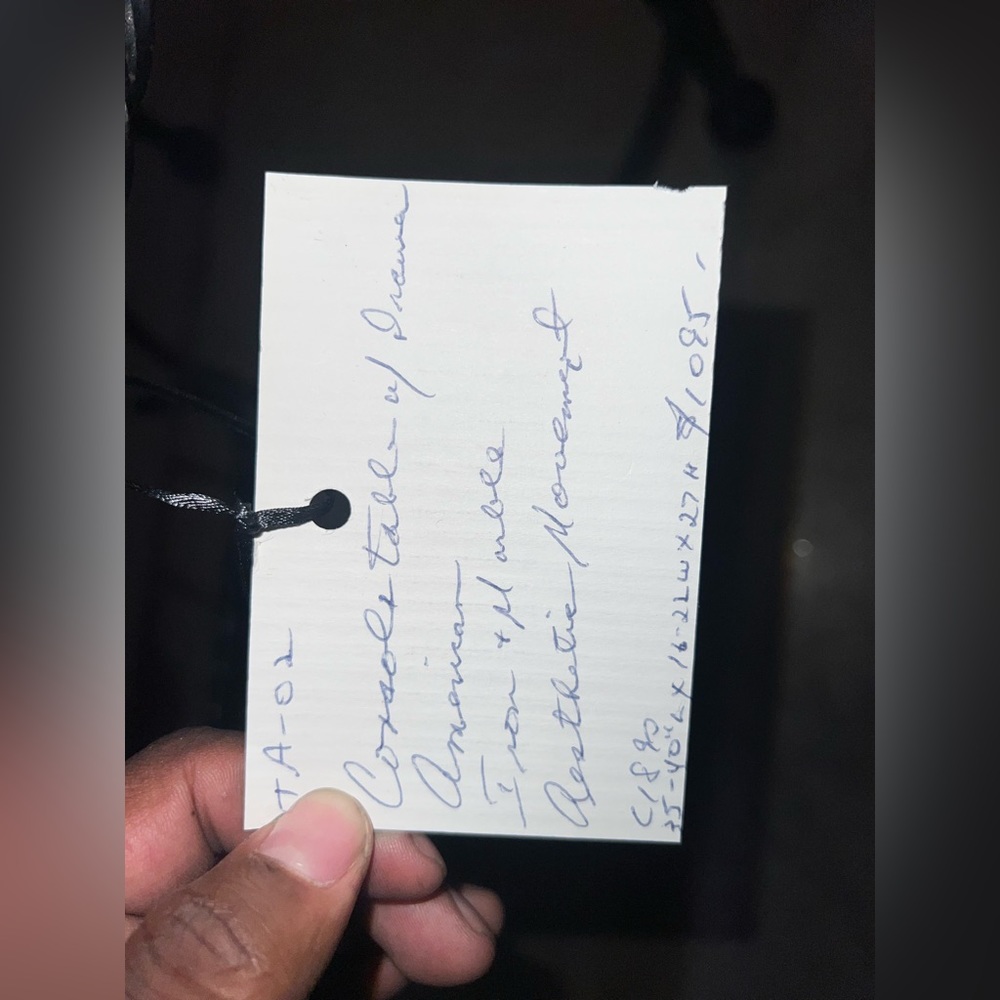 TA-02
Console table w/ Drawer
American
Iron + Marble
Aesthetic Movement
C1890
35-40"L x 16-22W x 27H $1095.